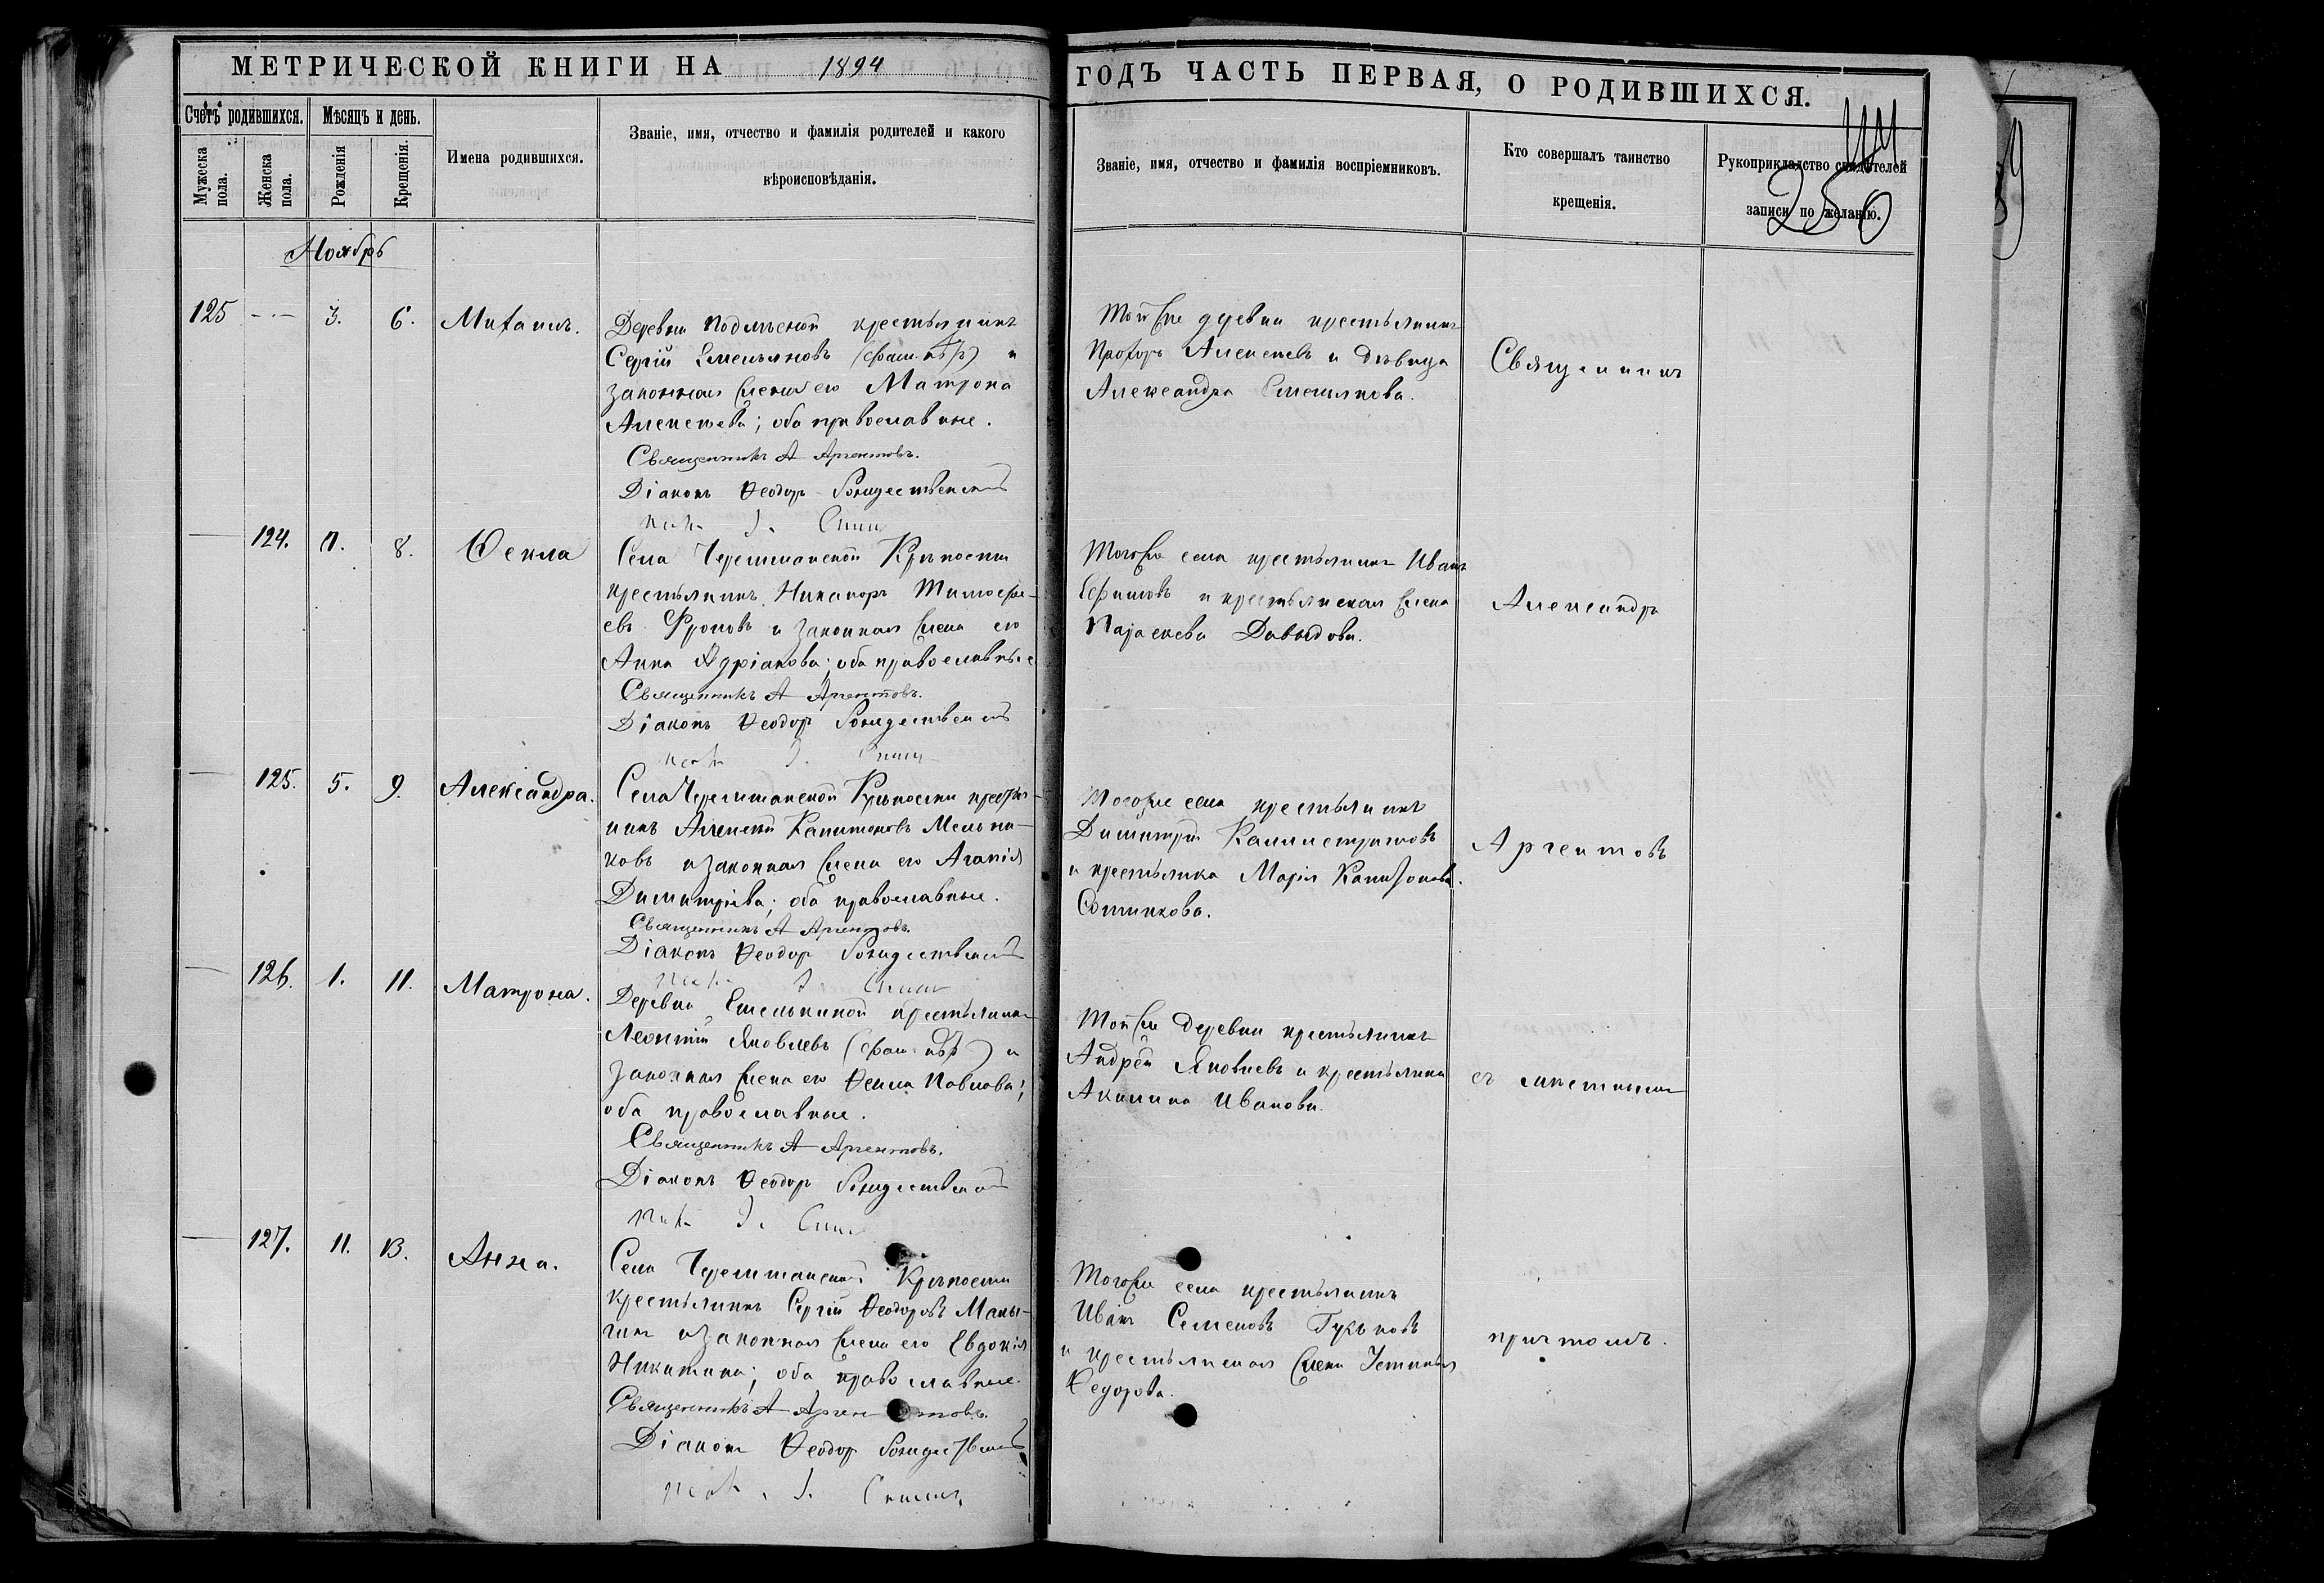 МЕТРИЧЕСКОЙ КНИГИ НА 1894
ГОДЪ ЧАСТЬ ПЕРВАЯ, О РОДИВШИХСЯ.
Счетъ родившихся.
Мѣсяцъ и день.
Мужеска пола.
Женска пола.
Рожденія
Крещенія.
Имена родившихся.
Званіе, имя, отчество и фамилія родителей и какого
вѣроисповѣданія.
Званіе, имя, отчество и фамилія воспріемниковъ.
Кто совершалъ таинство
крещенія.
Рукоприкладство свидѣтелей
записи по желанію.
250
Ноябрь
125 3. 6. Михаилъ.
Деревни крестьянинъ
Сергій Емельяновъ (фам. нѣтъ) и
законная жена его Матрона
Алексѣева; оба православные.
Священникъ А Аргентовъ.
Діаконъ Ѳеодоръ Рождественскій
Той же деревни крестьянинъ
Прохоръ Алексѣевъ и дѣвица
Александра Емельянова.
Священникъ
124. 7. 8. Ѳекла
Села Черемшанской Крѣпости
крестьянинъ Никаноръ Тимофе-
евъ Фроловъ и законная жена его
Анна Адріанова; оба православные
Священникъ А Аргентовъ.
Діаконъ Ѳеодоръ Рождественскій
Того же села крестьянинъ Иванъ
Ефимовъ и крестьянская жена
Параскева Давыдова.
Александръ
125. 5. 9. Александра.
Села Черемшанской Крѣпости крестья-
нинъ Алексѣй Капитоновъ Мельни-
ковъ и законная жена его Агапія
Димитріева; оба православные.
Священникъ А Аргентовъ.
Діаконъ Ѳеодоръ Рождественскій
Того же села крестьянинъ
Димитрій Каллистратовъ
и крестьянка Марія Капитонова
Сотникова.
Аргентовъ
126. 1. 11. Матрона.
Деревни Емелькиной крестьянинъ
Леонтій Яковлевъ (фам. нѣтъ) и
законная жена его Ѳекла Павлова;
оба православные.
Священникъ А Аргентовъ.
Діаконъ Ѳеодоръ Рождественскій
Той же деревни крестьянинъ
Андрей Яковлевъ и крестьянка
Акилина Иванова.
съ мѣстнымъ
127. 11. 13. Анна.
Села Черемшанской Крѣпости
крестьянинъ Сергій Ѳеодоровъ Маны-
гинъ и законная жена его Евдокія
Никитина; оба православные.
Священникъ А Аргентовъ.
Діаконъ Ѳеодоръ Рождественскій
Того же села крестьянинъ
Иванъ Семеновъ Гуськовъ
и крестьянская жена Устинья
Ѳедорова.
причтомъ.